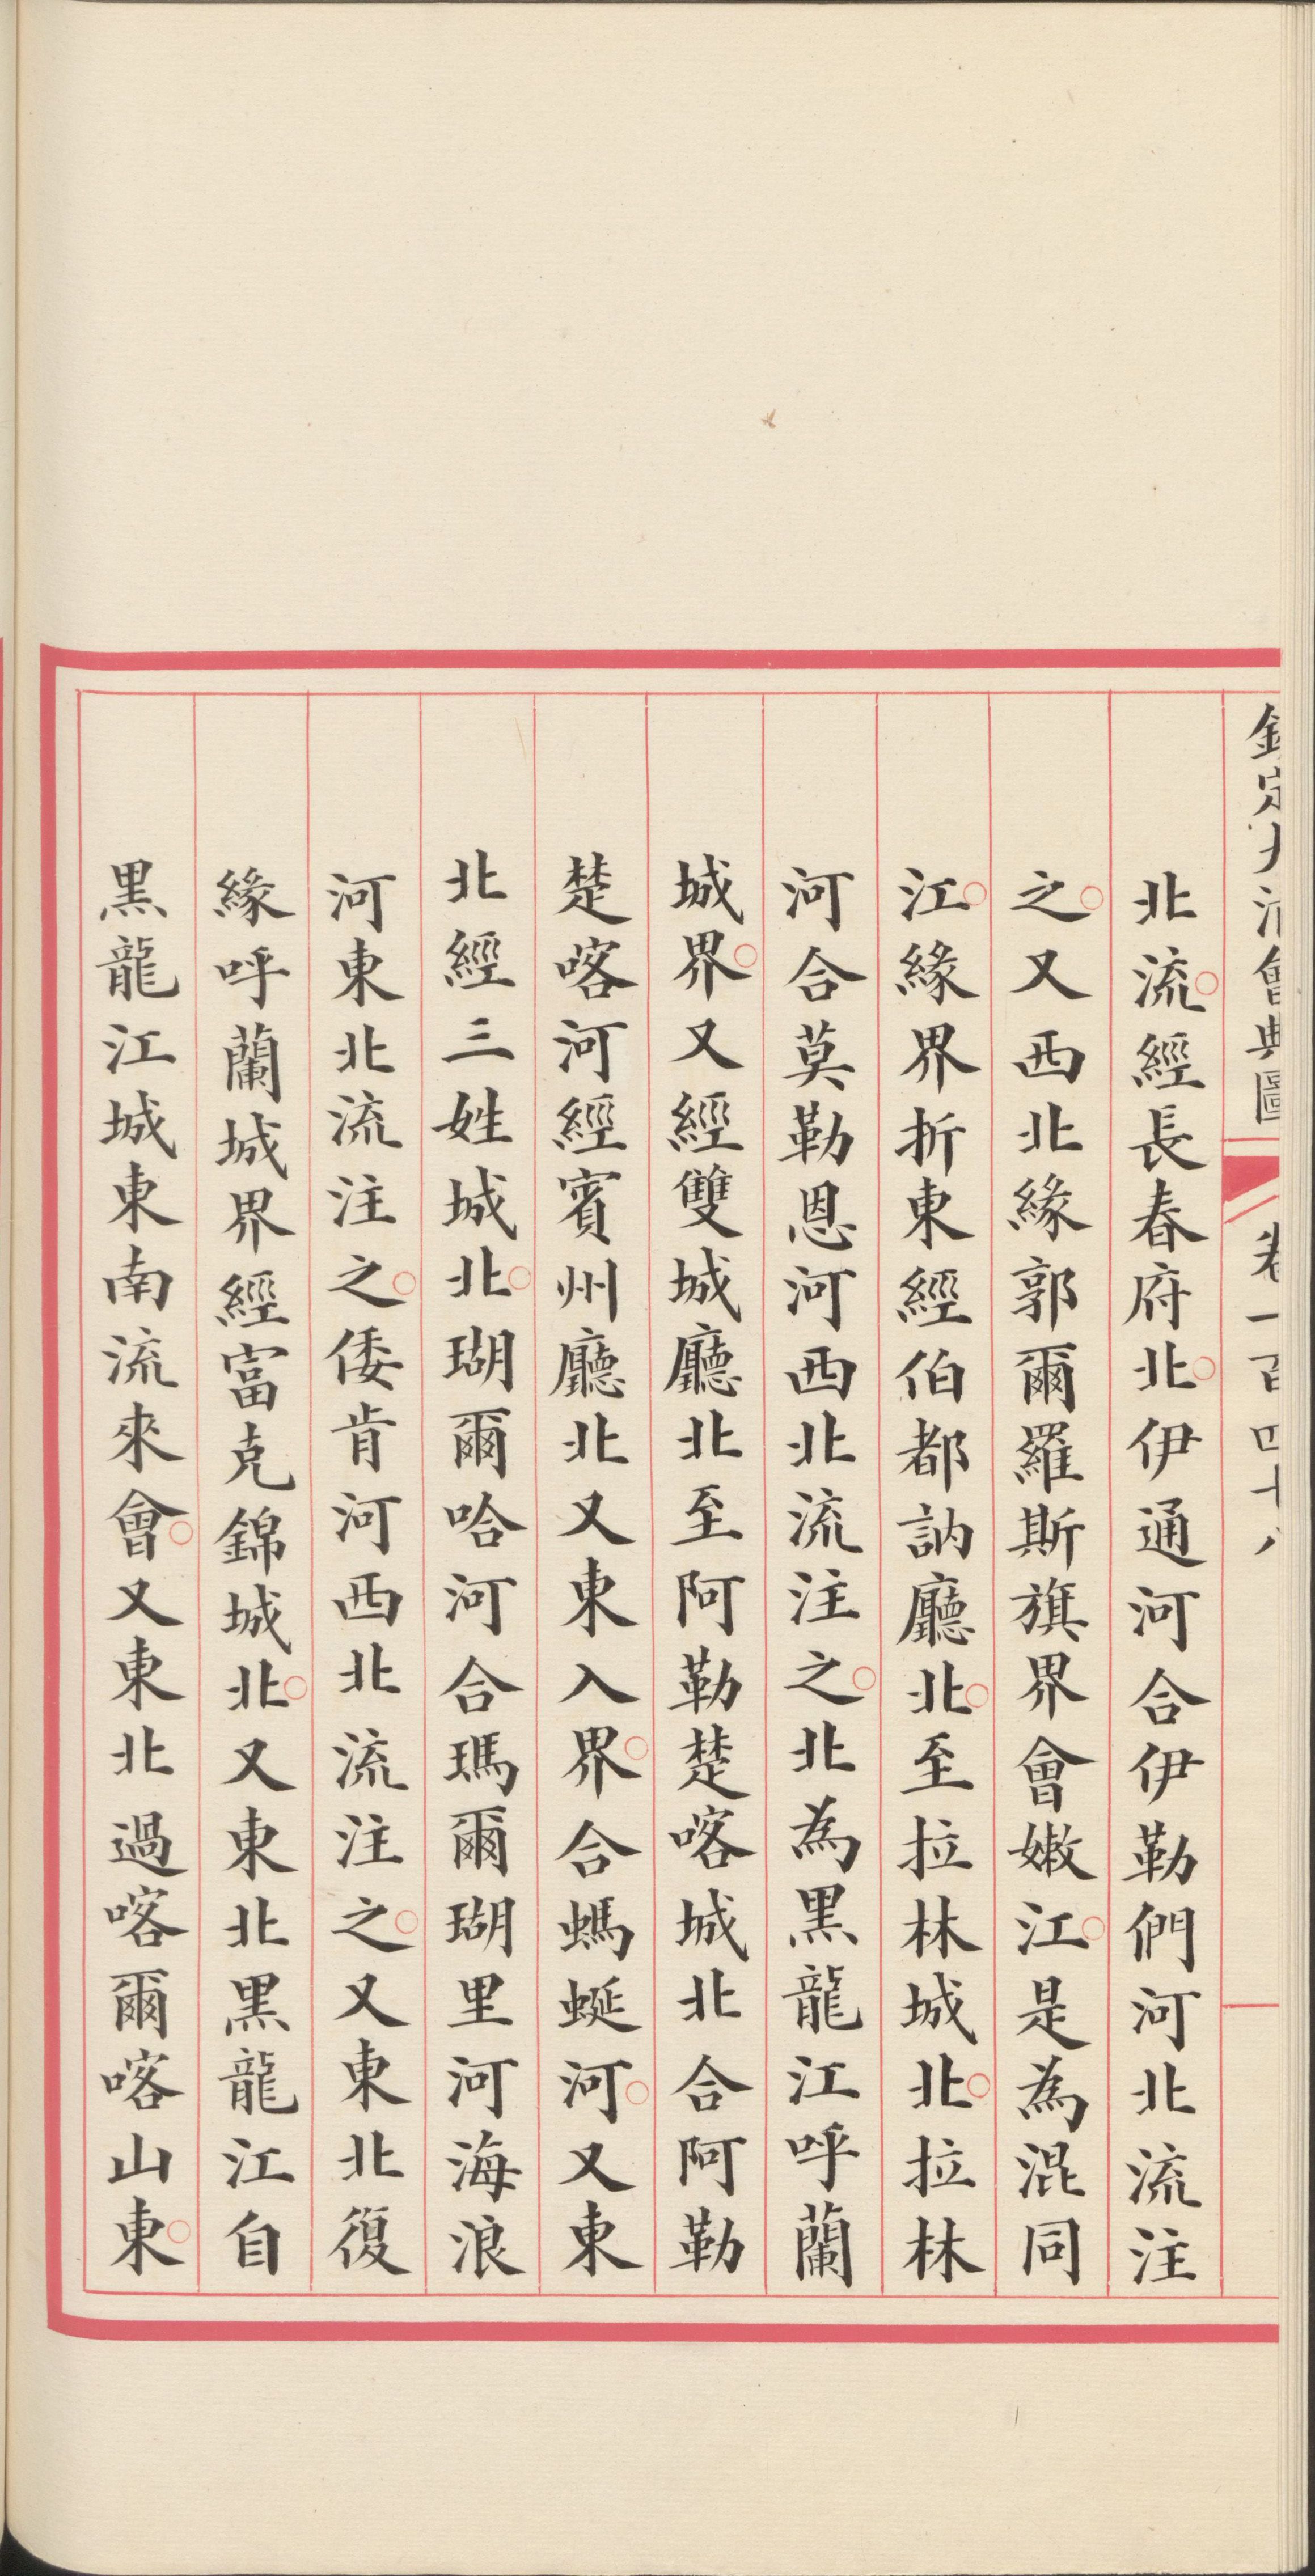 欽定大清會典圖 卷一百四十八
北流經長春府北伊通河合伊勒們河北流注
之又西北緣郭爾羅斯旗界會嫩江是為混同
江緣界折東經伯都訥廳北至拉林城北拉林
河合莫勒恩河西北流注之北為黑龍江呼蘭
城界又經雙城廳北至阿勒楚喀城北合阿勒
楚喀河經賓州廳北又東入界合螞蜒河又東
北經三姓城北瑚爾哈河合瑪爾瑚里河海浪
河東北流注之倭肯河西北流注之又東北復
緣呼蘭城界經富克錦城北又東北黑龍江自
黑龍江城東南流來會又東北過喀爾喀山東